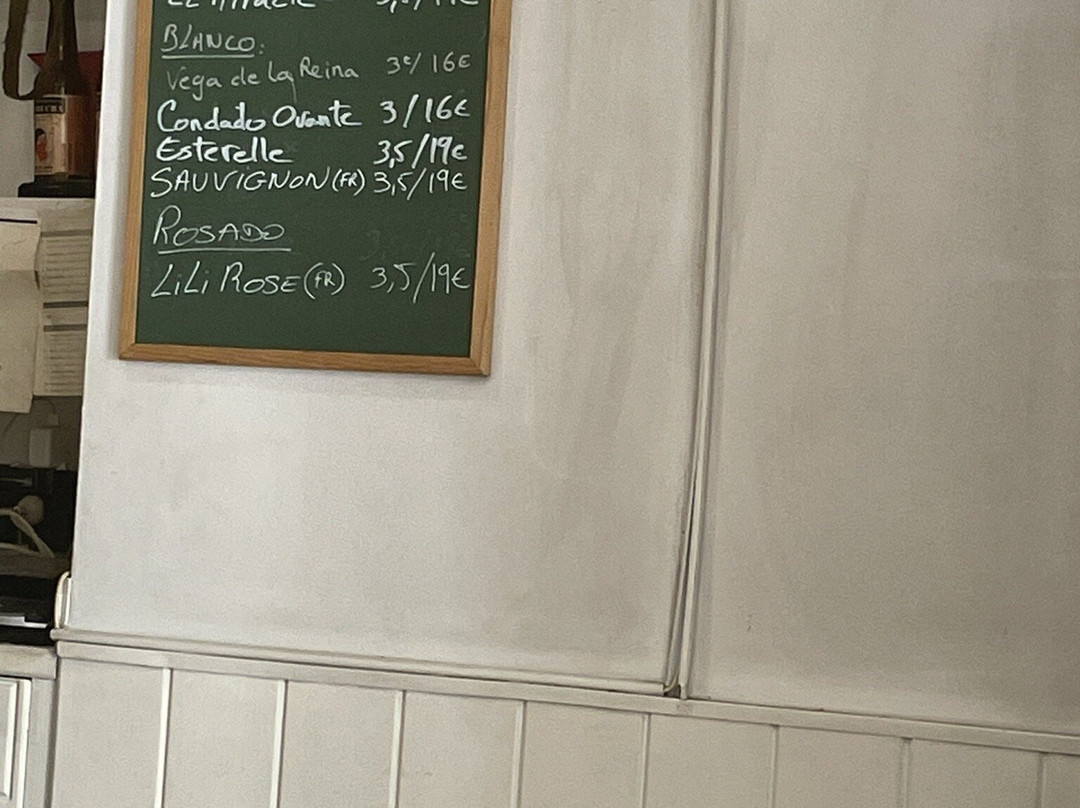 BLANCO:
Vega de La Reina 3€/16€
Condado Ovante 3/16€
Esterelle 3,5/19€
SAUVIGNON (FR) 3,5/19€
ROSADO
LiLi ROSE (FR) 3,5/19€